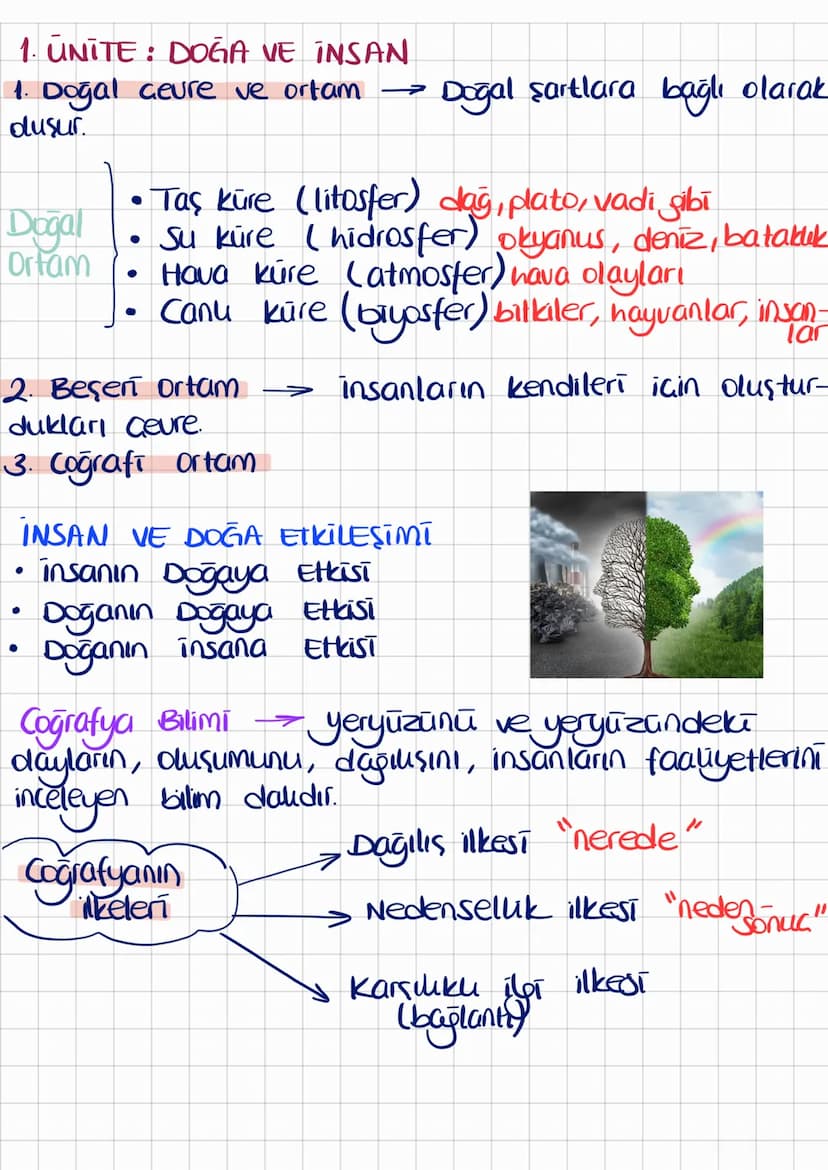 1. ÜNİTE : DOĞA VE İNSAN
1. Doğal çevre ve ortam → Doğal şartlara bağlı olarak
oluşur.
Doğal
Ortam
• Taş küre (litosfer) dağ, plato, vadi gibi
• Su küre (hidrosfer) okyanus, deniz, bataklık
• Hava küre (atmosfer) hava olayları
• Canlı küre (biyosfer) bitkiler, hayvanlar, insan-
lar
2. Beşeri ortam → insanların kendileri için oluştur-
dukları çevre.
3. Coğrafi ortam
İNSAN VE DOĞA ETKİLEŞİMİ
• İnsanın Doğaya Etkisi
• Doğanın Doğaya Etkisi
• Doğanın insana Etkisi
Coğrafya Bilimi → yeryüzünü ve yeryüzündeki
olayların, oluşumunu, dağılışını, insanların faaliyetlerini
inceleyen bilim dalıdır.
Coğrafyanın
ilkeleri
Dağılış ilkesi "nerede"
Nedensellik ilkesi "neden-
sonuç"
Karşılıklı ilgi ilkesi
(bağlantı)